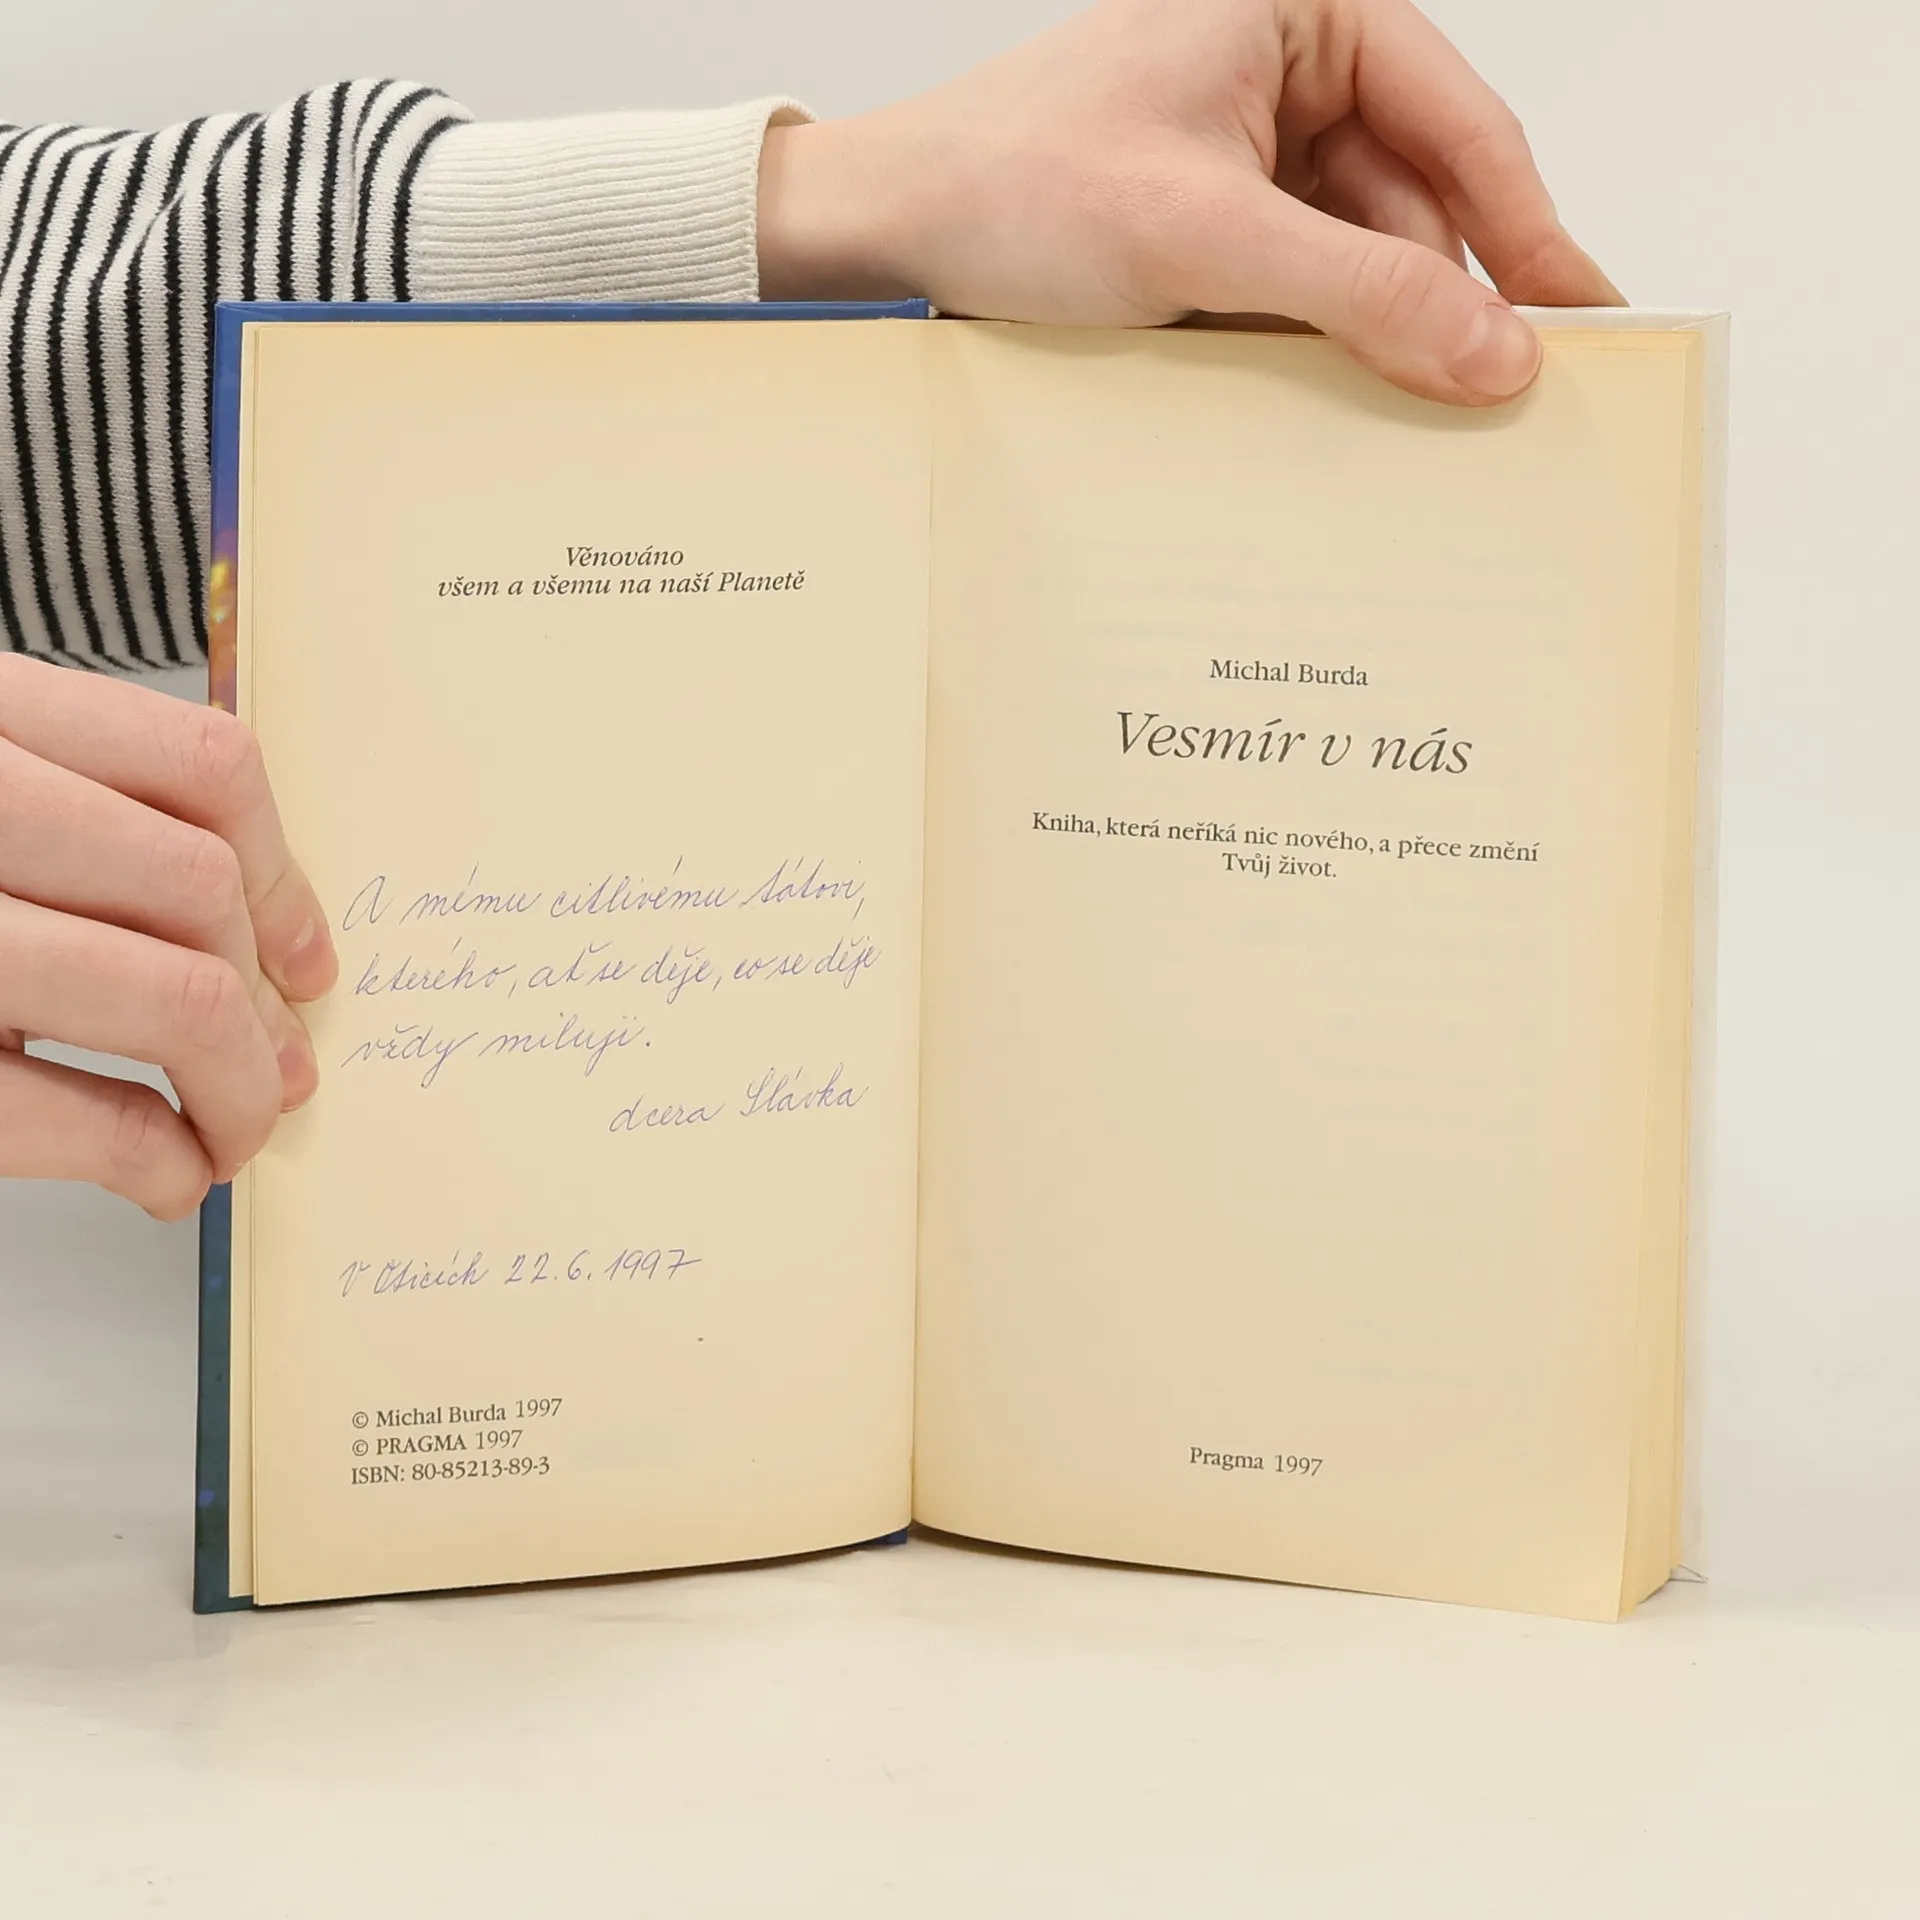 Věnováno
všem a všemu na naší Planetě
A mému citlivému tátovi,
kterého, ať se děje, co se děje
vždy miluji.
dcera Slávka
V Oticích 22.6.1997
© Michal Burda 1997
© PRAGMA 1997
ISBN: 80-85213-89-3
Michal Burda
Vesmír v nás
Kniha, která neříká nic nového, a přece změní
Tvůj život.
Pragma 1997